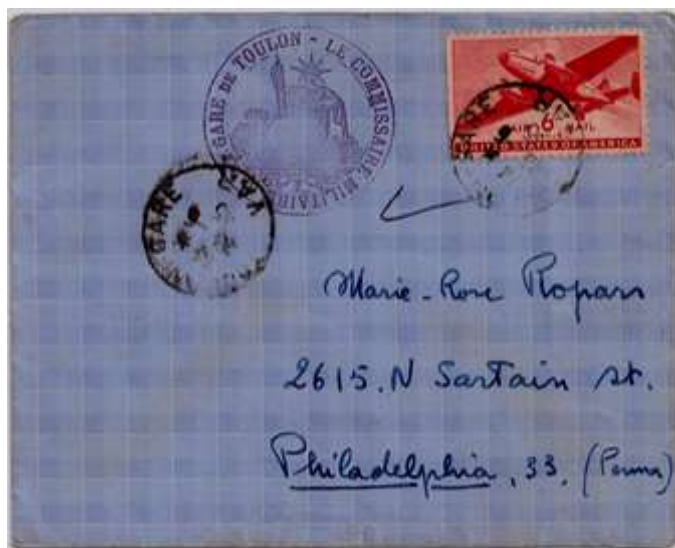 GARE DE TOULON - LE COMMISSAIRE MILITAIRE
AIR 6¢ MAIL
UNITED STATES OF AMERICA
GARE
VAR
GARE
Marie-Rose Ropars
2615.N Sartain St.
Philadelphia, 33. (Penna)